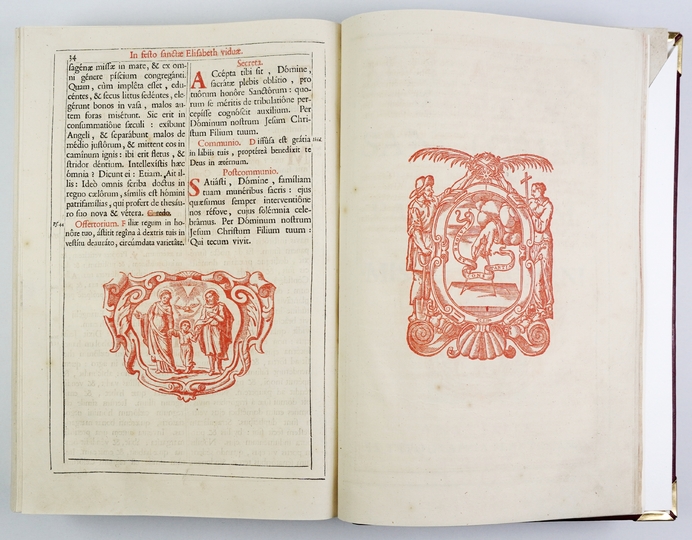 34
In festo sanctæ Elisabeth viduæ.
sagénæ missæ in mare, & ex om-
ni génere piscium congregánti.
Quam, cùm impléta esset, edu-
céntes, & secus littus sedéntes, ele-
gérunt bonos in vasa, malos au-
tem foras misérunt. Sic erit in
consummatióne sæculi : exibunt
Angeli, & separábunt malos de
médio justórum, & mittent eos in
caminum ignis : ibi erit fletus, &
stridor déntium. Intellexístis hæc
ómnia ? Dicunt ei : Etiam. Ait il-
lis : Ideò omnis scriba doctus in
regno cælórum, símilis est hómini
patrifamílias, qui profert de thesáu-
ro suo nova & vétera. Credo.
Offertorium. Fíliæ regum in ho-
nóre tuo, ástitit regína à dextris tuis in
vestítu deauráto, circúmdata varietáte.
Secreta.
ACcépta tibi sit , Dómine,
sacrátæ plebis oblátio , pro
tuórum honóre Sanctórum : quo-
rum se méritis de tribulatióne per-
cepísse cognóscit auxílium. Per
Dóminum nostrum Jesum Chri-
stum Fílium tuum.
Communio. Diffúsa est grátia
in lábiis tuis , proptéreà benedíxit te
Deus in ætérnum.
Postcommunio.
SAtiásti , Dómine , famíliam
tuam munéribus sacris : ejus
quæsumus semper interventióne
nos réfove, cujus solémnia cele-
brámus. Per Dóminum nostrum
Jesum Christum Fílium tuum :
Qui tecum vivit.